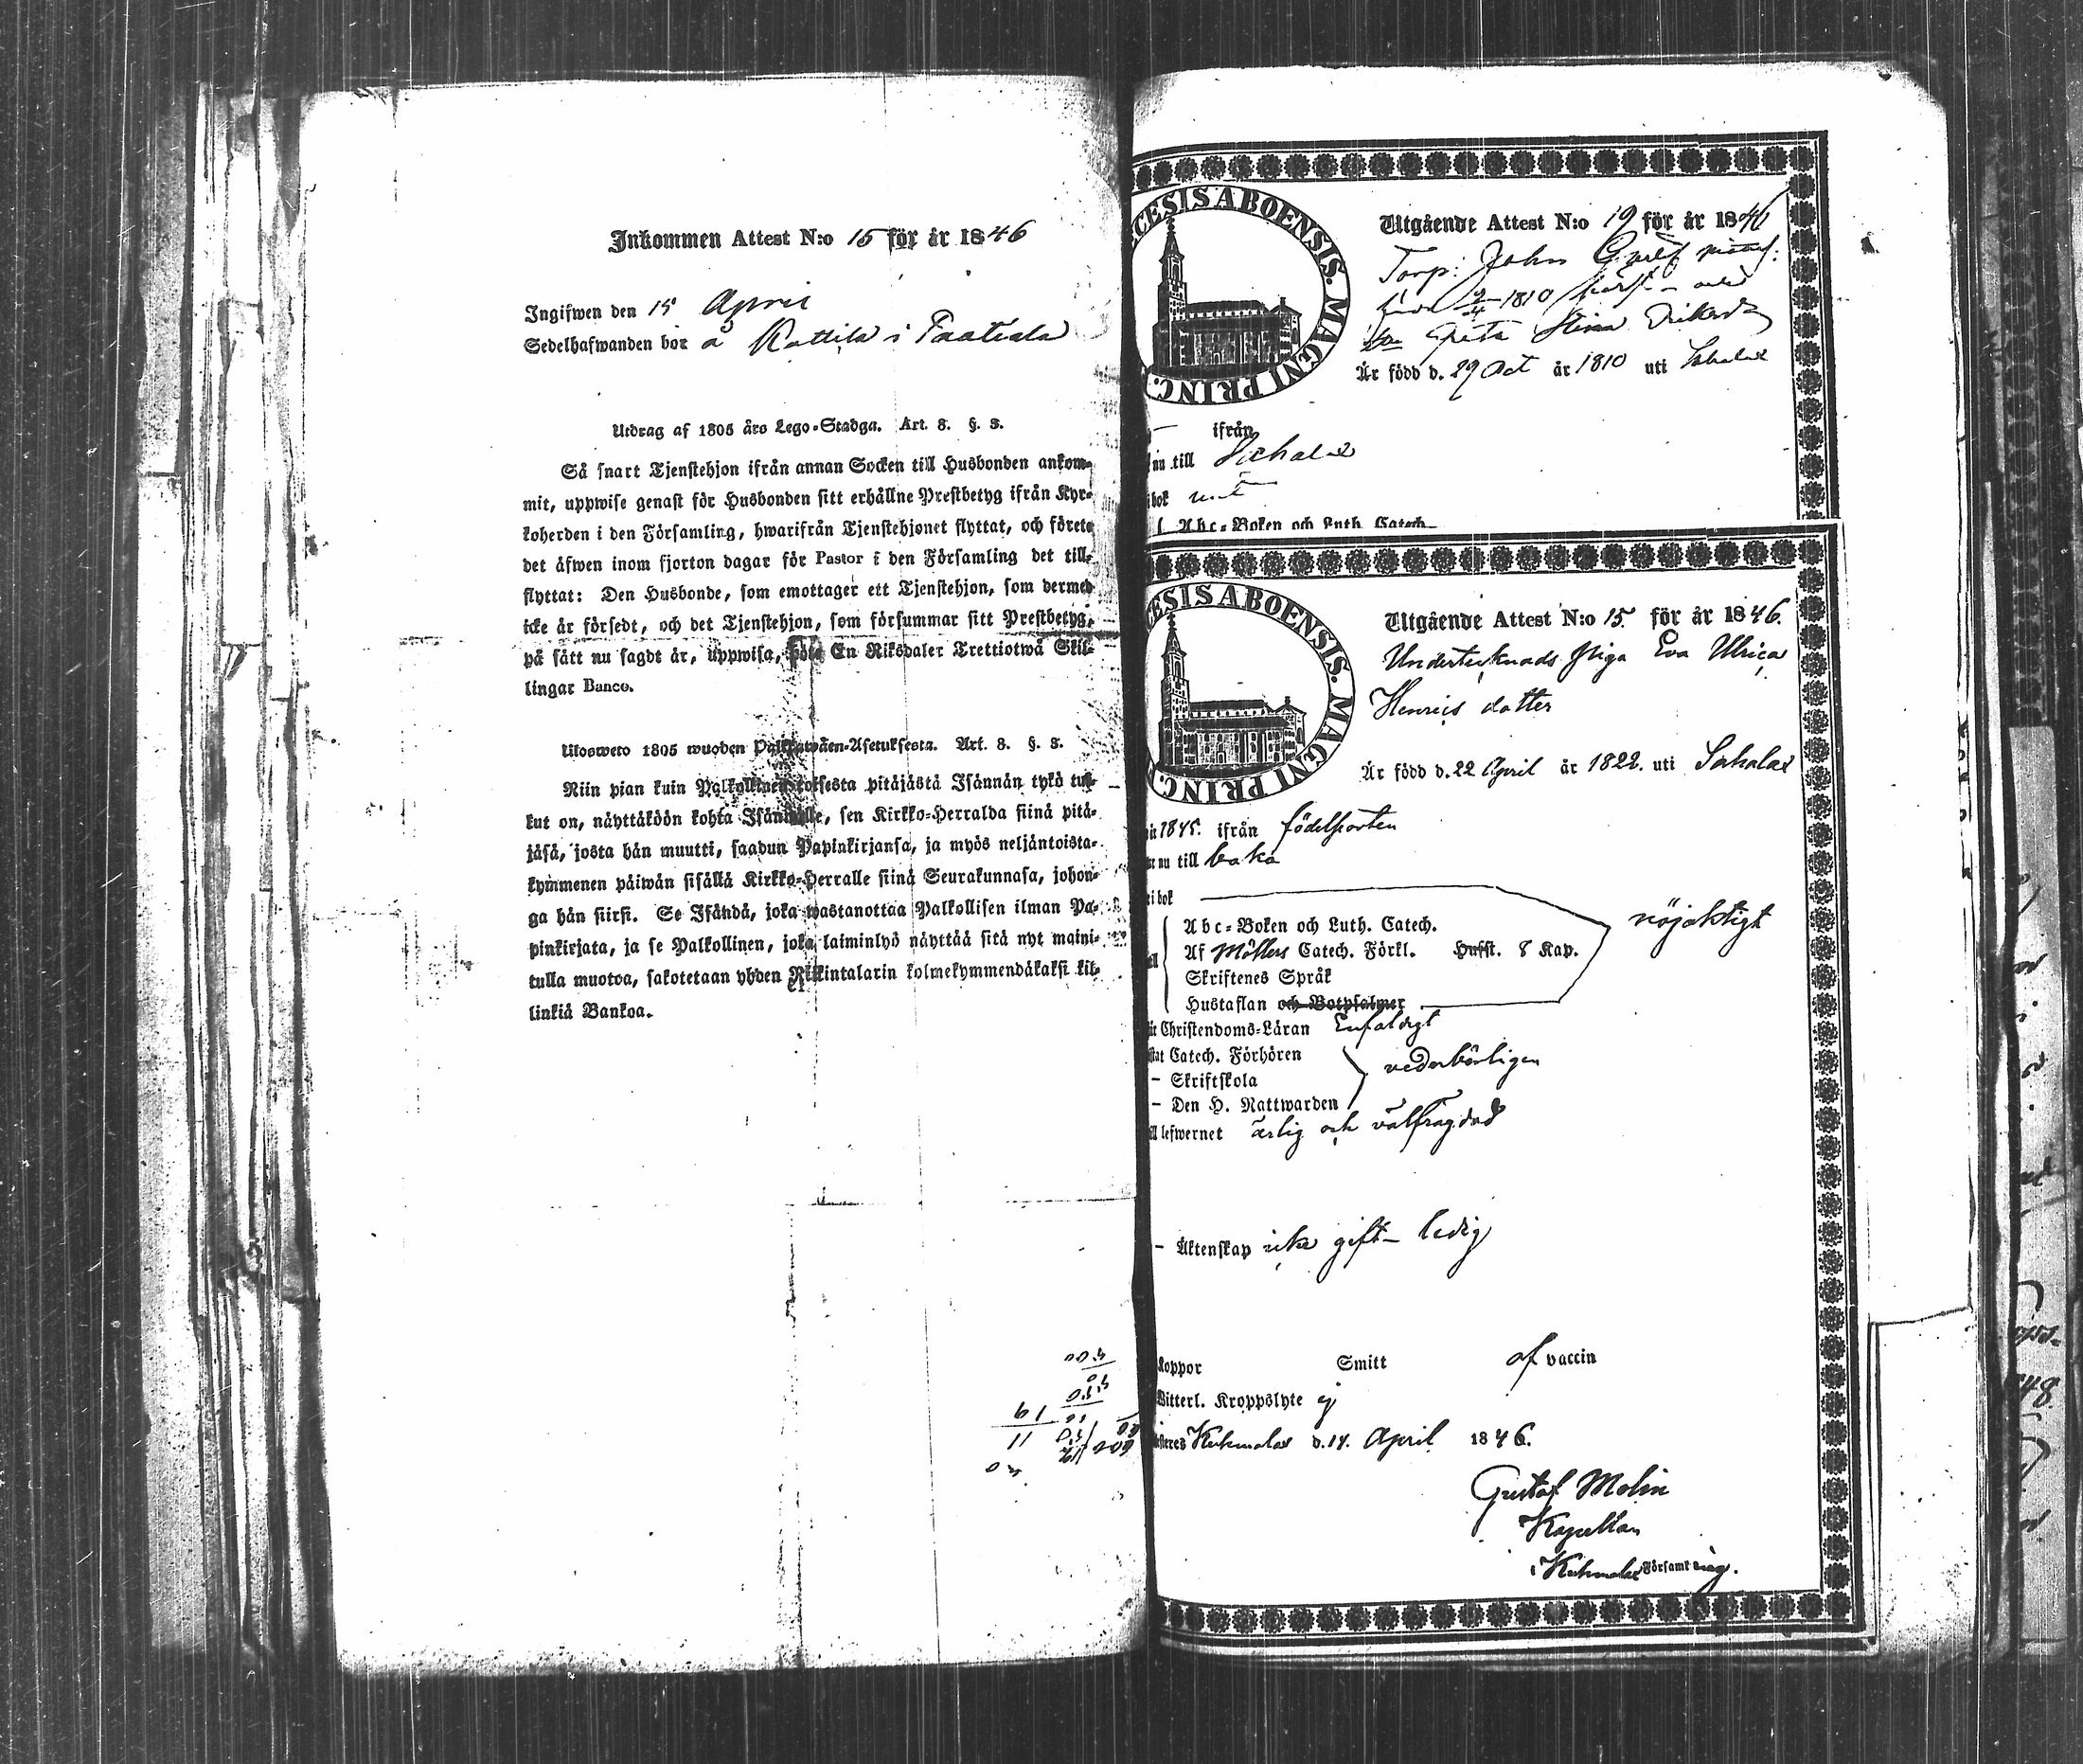 Inkommen Attest N:o 15 för år 1846
Ingifwen den 15 April
Sedelhafwanden bor å Rattila i Paatiala
Utdrag af 1805 års Lego-Stadga. Art. 8. §. 3.
Så snart Tjenstehjon ifrån annan Socken till Husbonden ankom-
mit, uppwise genast för Husbonden sitt erhållne Prestbetyg ifrån Kyr-
koherden i den Församling, hwarifrån Tjenstehjonet flyttat, och förete
det äfwen inom fjorton dagar för Pastor i den Församling det till-
flyttat: Den Husbonde, som emottager ett Tjenstehjon, som dermed
icke är försedt, och det Tjenstehjon, som försummar sitt Prestbetyg,
på sätt nu sagdt är, uppwisa, böte En Riksdaler Trettiotwå Skil-
lingar Banco.
Ulosweto 1805 wuoden Palkkawäen-Asetuksesta. Art. 8. §. 3.
Niin pian kuin Palkollinen toisesta pitäjästä Isännän tykö tul-
kut on, näyttäköön kohta Isännälle, sen Kirkko-Herralda siinä pitä-
jäsä, josta hän muutti, saadun Papinkirjansa, ja myös neljäntoista-
kymmenen päiwän sisällä Kirkko-Herralle siinä Seurakunnasa, johon-
ga hän siirsi. Se Isändä, joka wastanottaa Palkollisen ilman Pa-
pinkirjata, ja se Palkollinen, joka laiminlyö näyttää sitä nyt maini-
tulla muotoa, sakotetaan yhden Riikintalarin kolmekymmendäkaksi kil-
linkiä Bankoa.
CESIS ABOENSIS. MAGNI PRINC.
Utgående Attest N:o 19 för år 1846
Torp: John Gustf
1810
Greta Stina
Är född d. 29 Oct år 1810 uti Sahalax
ifrån
nu till Sahalax
i bok
Abc-Boken och Luth. Catech.
CESIS ABOENSIS. MAGNI PRINC.
Utgående Attest N:o 15. för år 1846.
Undertecknads Piga Eva Ulrica
Henrics dotter
Är född d. 22 April år 1822. uti Sahalax
1845. ifrån födelseorten
nu till baka
i bok
Abc-Boken och Luth. Catech.
nöjaktigt
Af Möllers Catech. Förkl. Hufst. 8 Kap.
Skriftenes Språk
Hustaflan och Botpsalmer
Christendoms-Läran Enfaldigt
Catech. Förhören
vederbörligen
– Skriftskola
– Den H. Nattwarden
lefwernet ärlig och välfrägdad
– Äktenskap icke gift – ledig
koppor Smitt af vaccin
Witterl. Kroppslyte ej
Kuhmalax d. 14. April 1846.
Gustaf Molin
Kapellan
i Kuhmalax Församling.